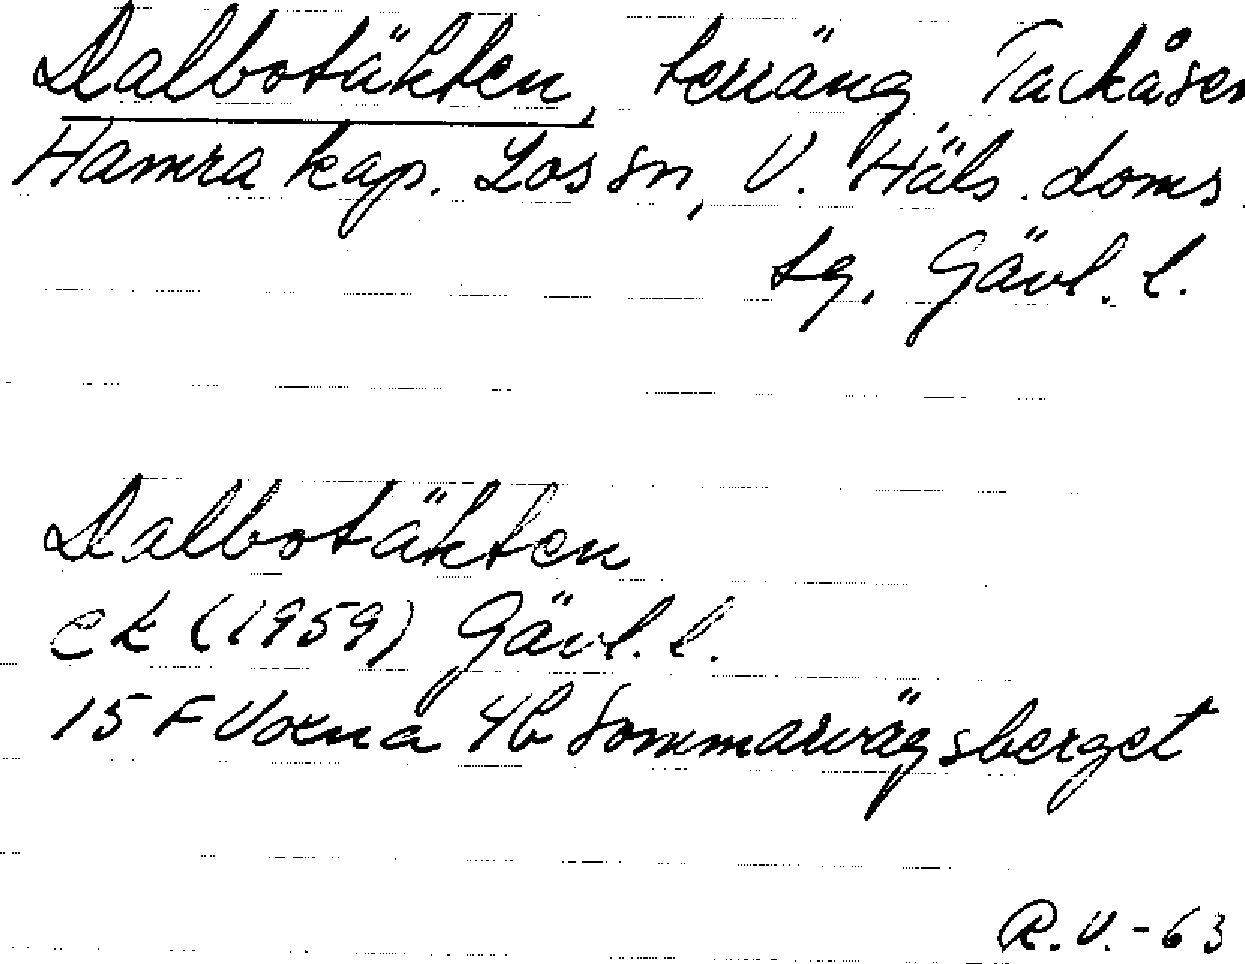 Dalbotäkten, terräng Tackåsen
Hamra kap. Los sn, V. Häls. doms.
tg. Gävl. l.
Dalbotäkten
ek (1959) Gävl. l.
15 F Voxna 4b Sommarvägsberget
R.V.-63